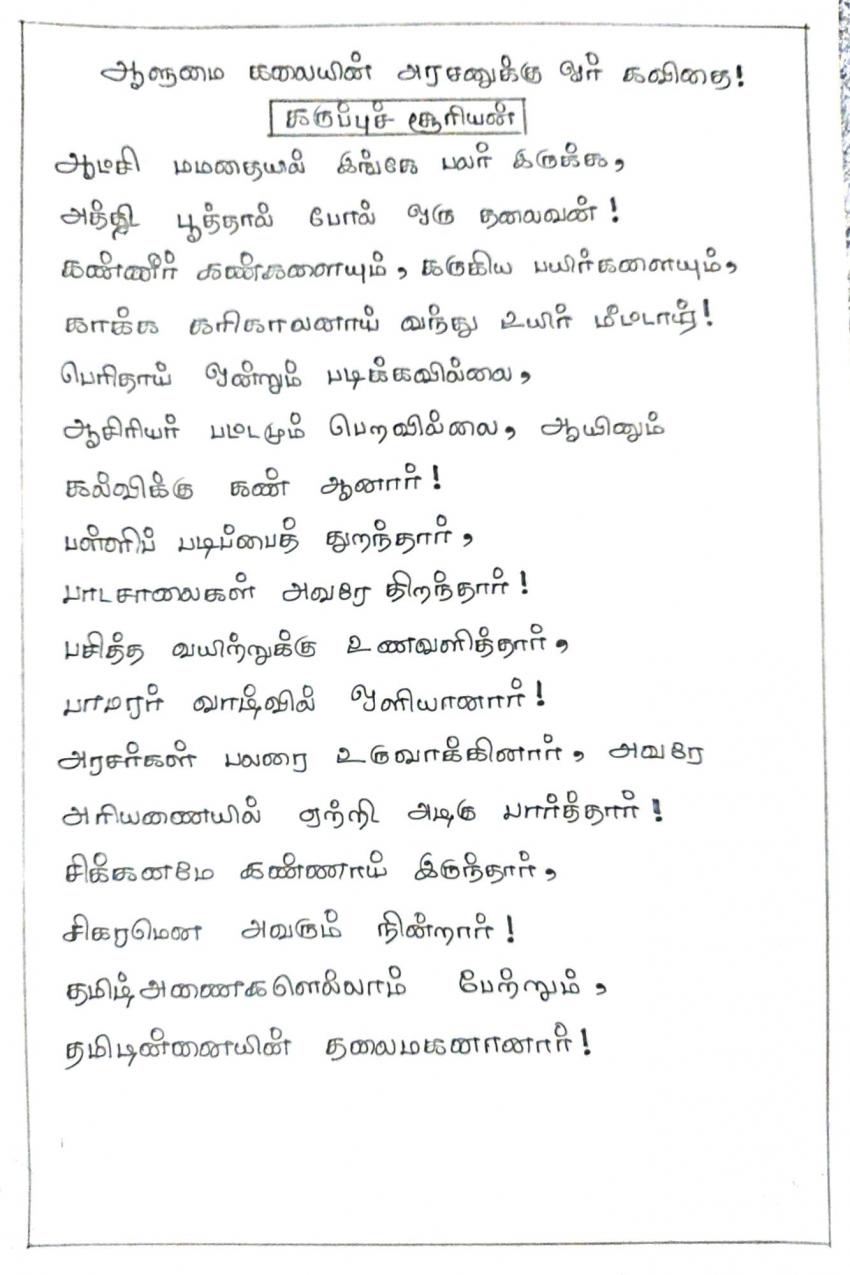 ஆளுமை கலையின் அரசனுக்கு ஓர் கவிதை!
கருப்புச் சூரியன்
ஆட்சி மமதையில் இங்கே பலர் இருக்க,
அத்தி பூத்தால் போல் ஒரு தலைவன்!
கண்ணீர் கண்களையும், கருகிய பயிர்களையும்,
காக்க கரிகாலனாய் வந்து உயிர் மீட்டார்!
பெரிதாய் ஒன்றும் படிக்கவில்லை,
ஆசிரியர் பட்டமும் பெறவில்லை, ஆயினும்
கல்விக்கு கண் ஆனார்!
பள்ளிப் படிப்பைத் துறந்தார்,
பாடசாலைகள் அவரே திறந்தார்!
பசித்த வயிற்றுக்கு உணவளித்தார்,
பாமரர் வாழ்வில் ஒளியானார்!
அரசர்கள் பலரை உருவாக்கினார், அவரே
அரியணையில் ஏற்றி அழகு பார்த்தார்!
சிக்கனமே கண்ணாய் இருந்தார்,
சிகரமென அவரும் நின்றார்!
தமிழ் அணைகளெல்லாம் பேற்றும்,
தமிழன்னையின் தலைமகனானார்!